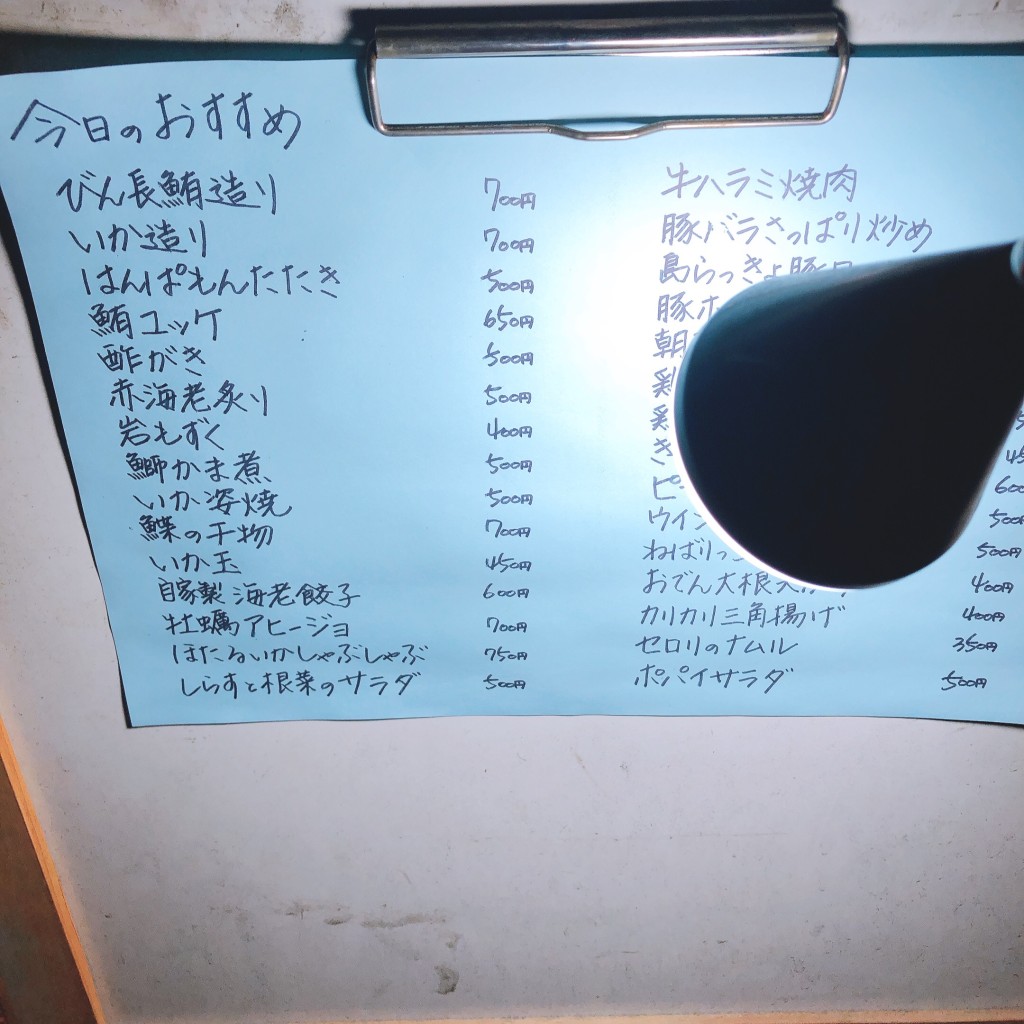 今日のおすすめ
びん長鮪造り 700円
いか造り 700円
はんぱもんたたき 500円
鮪ユッケ 650円
酢がき 500円
赤海老炙り 500円
岩もずく 400円
鰤かま煮 500円
いか姿焼 500円
鰈の干物 700円
いか玉 450円
自家製海老餃子 600円
牡蠣アヒージョ 700円
ほたるいかしゃぶしゃぶ 750円
しらすと根菜のサラダ 500円
牛ハラミ焼肉
豚バラさっぱり炒め
島らっきょ豚
豚ホ
朝
鶏
鶏
き 45
ピ 600
ウイン 500
ねばりっこ 500円
おでん大根 400円
カリカリ三角揚げ 400円
セロリのナムル 350円
ポパイサラダ 500円